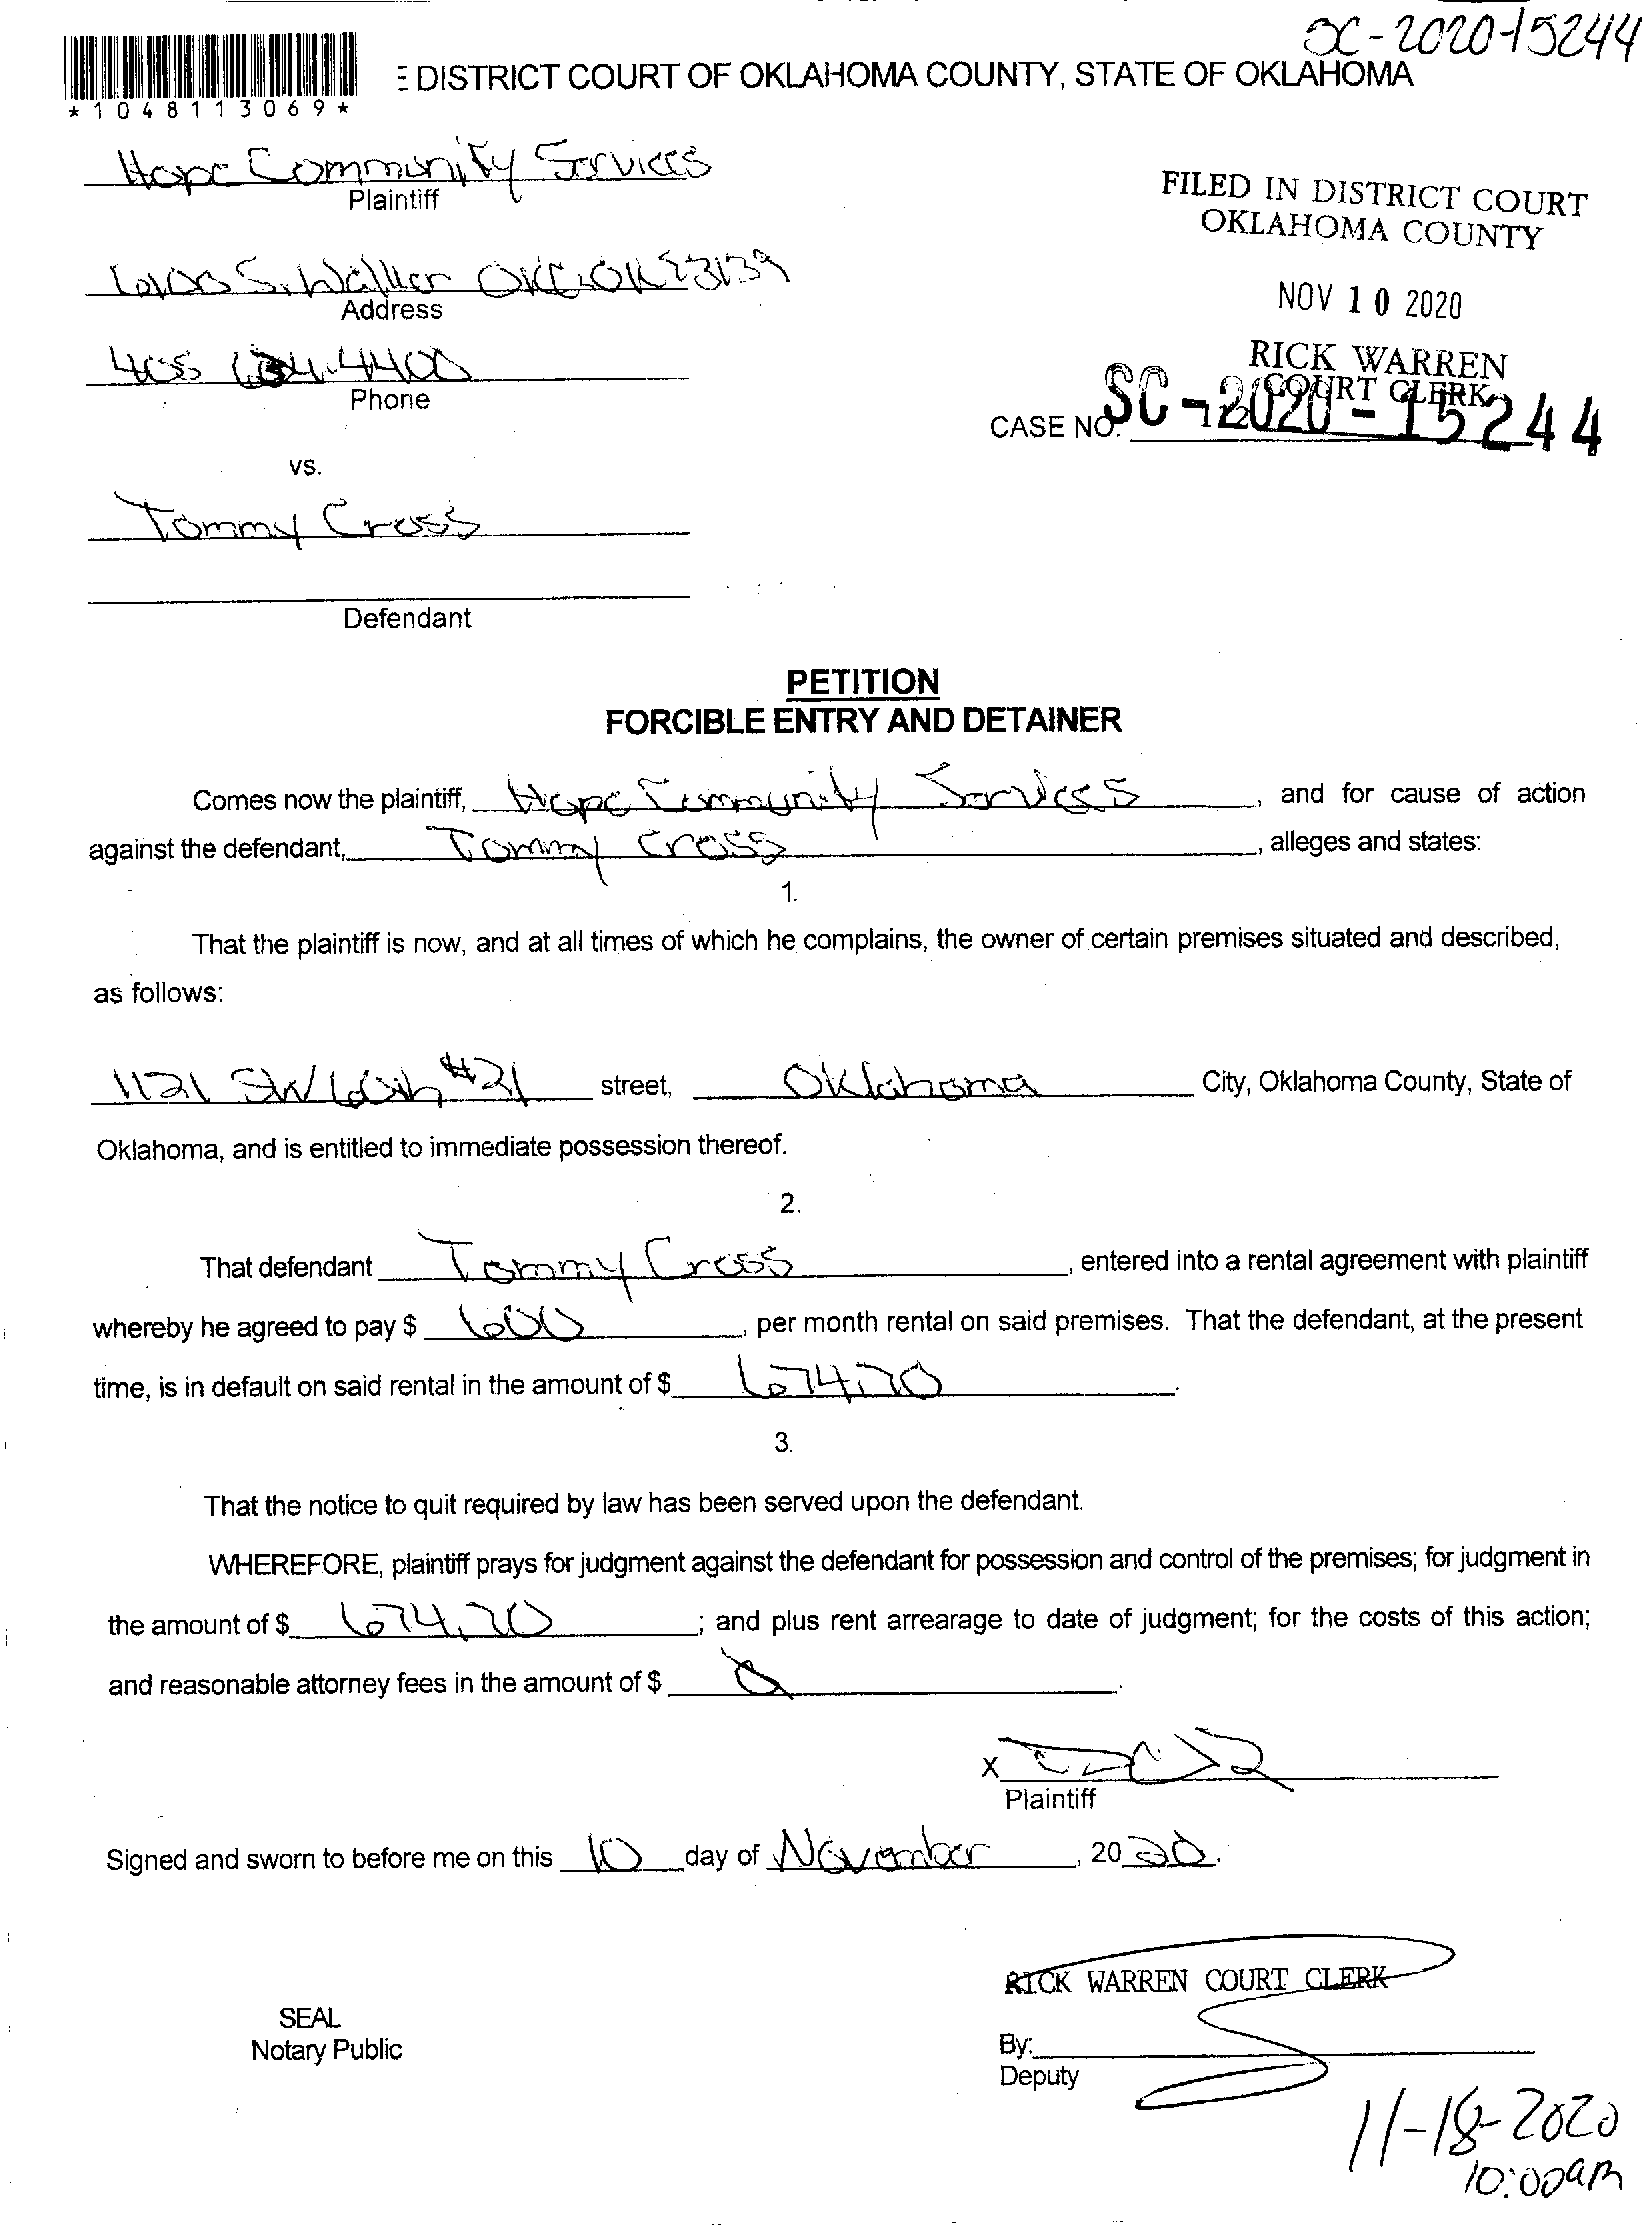 SC-2020-15244
E DISTRICT COURT OF OKLAHOMA COUNTY, STATE OF OKLAHOMA
*1048113069*
Hope Community Services
Plaintiff
FILED IN DISTRICT COURT
OKLAHOMA COUNTY
6100 S. Walker OKC, OK 73139
Address
NOV 10 2020
405 634.4400
Phone
RICK WARREN
COURT CLERK
CASE NO. SC-2020-15244
vs.
Tommy Cross
Defendant
PETITION
FORCIBLE ENTRY AND DETAINER
Comes now the plaintiff, Hope Community Services, and for cause of action
against the defendant, Tommy Cross, alleges and states:
1.
That the plaintiff is now, and at all times of which he complains, the owner of certain premises situated and described,
as follows:
1121 SW #21 street, Oklahoma City, Oklahoma County, State of
Oklahoma, and is entitled to immediate possession thereof.
2.
That defendant Tommy Cross, entered into a rental agreement with plaintiff
whereby he agreed to pay $ 600, per month rental on said premises. That the defendant, at the present
time, is in default on said rental in the amount of $ 674.70.
3.
That the notice to quit required by law has been served upon the defendant.
WHEREFORE, plaintiff prays for judgment against the defendant for possession and control of the premises; for judgment in
the amount of $ 674.70; and plus rent arrearage to date of judgment; for the costs of this action;
and reasonable attorney fees in the amount of $ 0.
X
Plaintiff
Signed and sworn to before me on this 10 day of November, 2020.
RICK WARREN COURT CLERK
SEAL
Notary Public
By:
Deputy
11-18-2020
10:00am